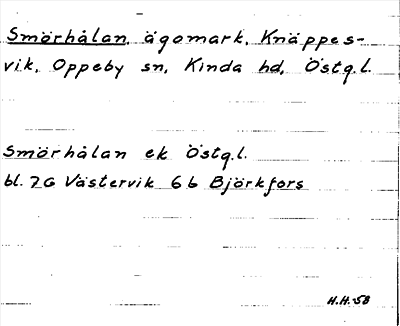 Smörhålan, ägomark, Knäppes-
vik, Oppeby sn, Kinda hd, Östg.l.
Smörhålan ek Östg.l.
bl. 7G Västervik 6b Björkfors
H.H. 58